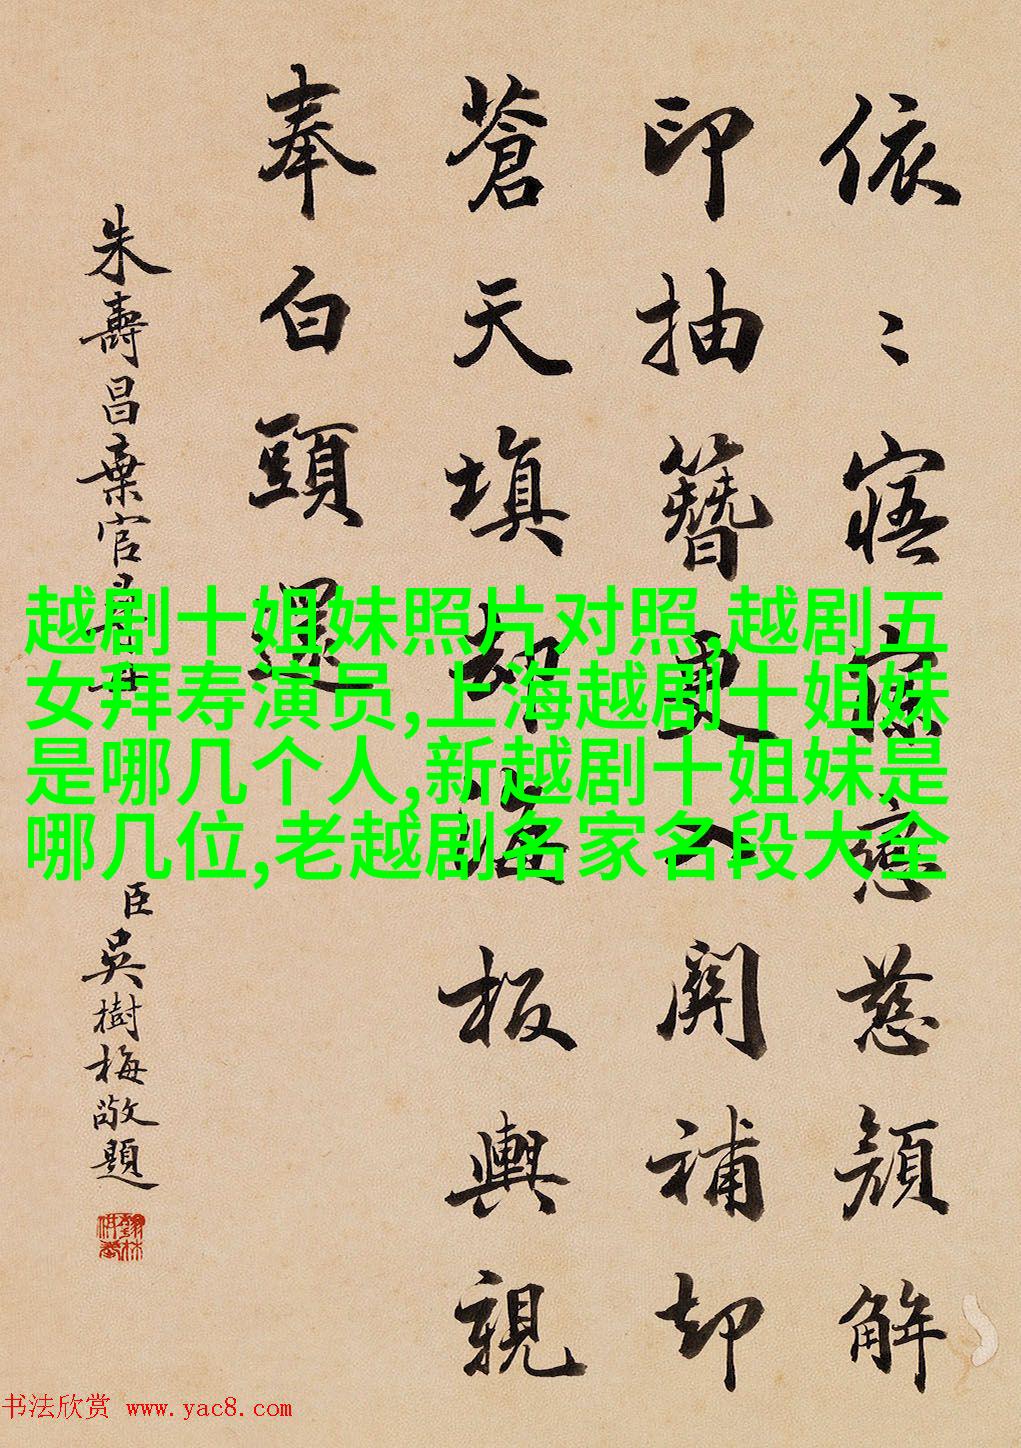 依〻寤寐戀慈顏解
印抽簪更入關補却
蒼天填却海板輿親
奉白頭還
朱壽昌棄官尋母
臣吳樹梅敬題
越剧十姐妹照片对照,越剧五
女拜寿演员,上海越剧十姐妹
是哪几个人,新越剧十姐妹是
哪几位,老越剧名家名段大全
书法欣赏 www.yac8.com